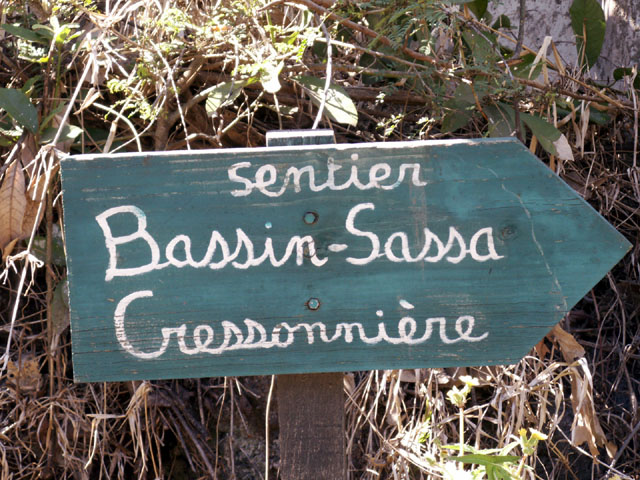 sentier
Bassin-Sassa
Cressonnière